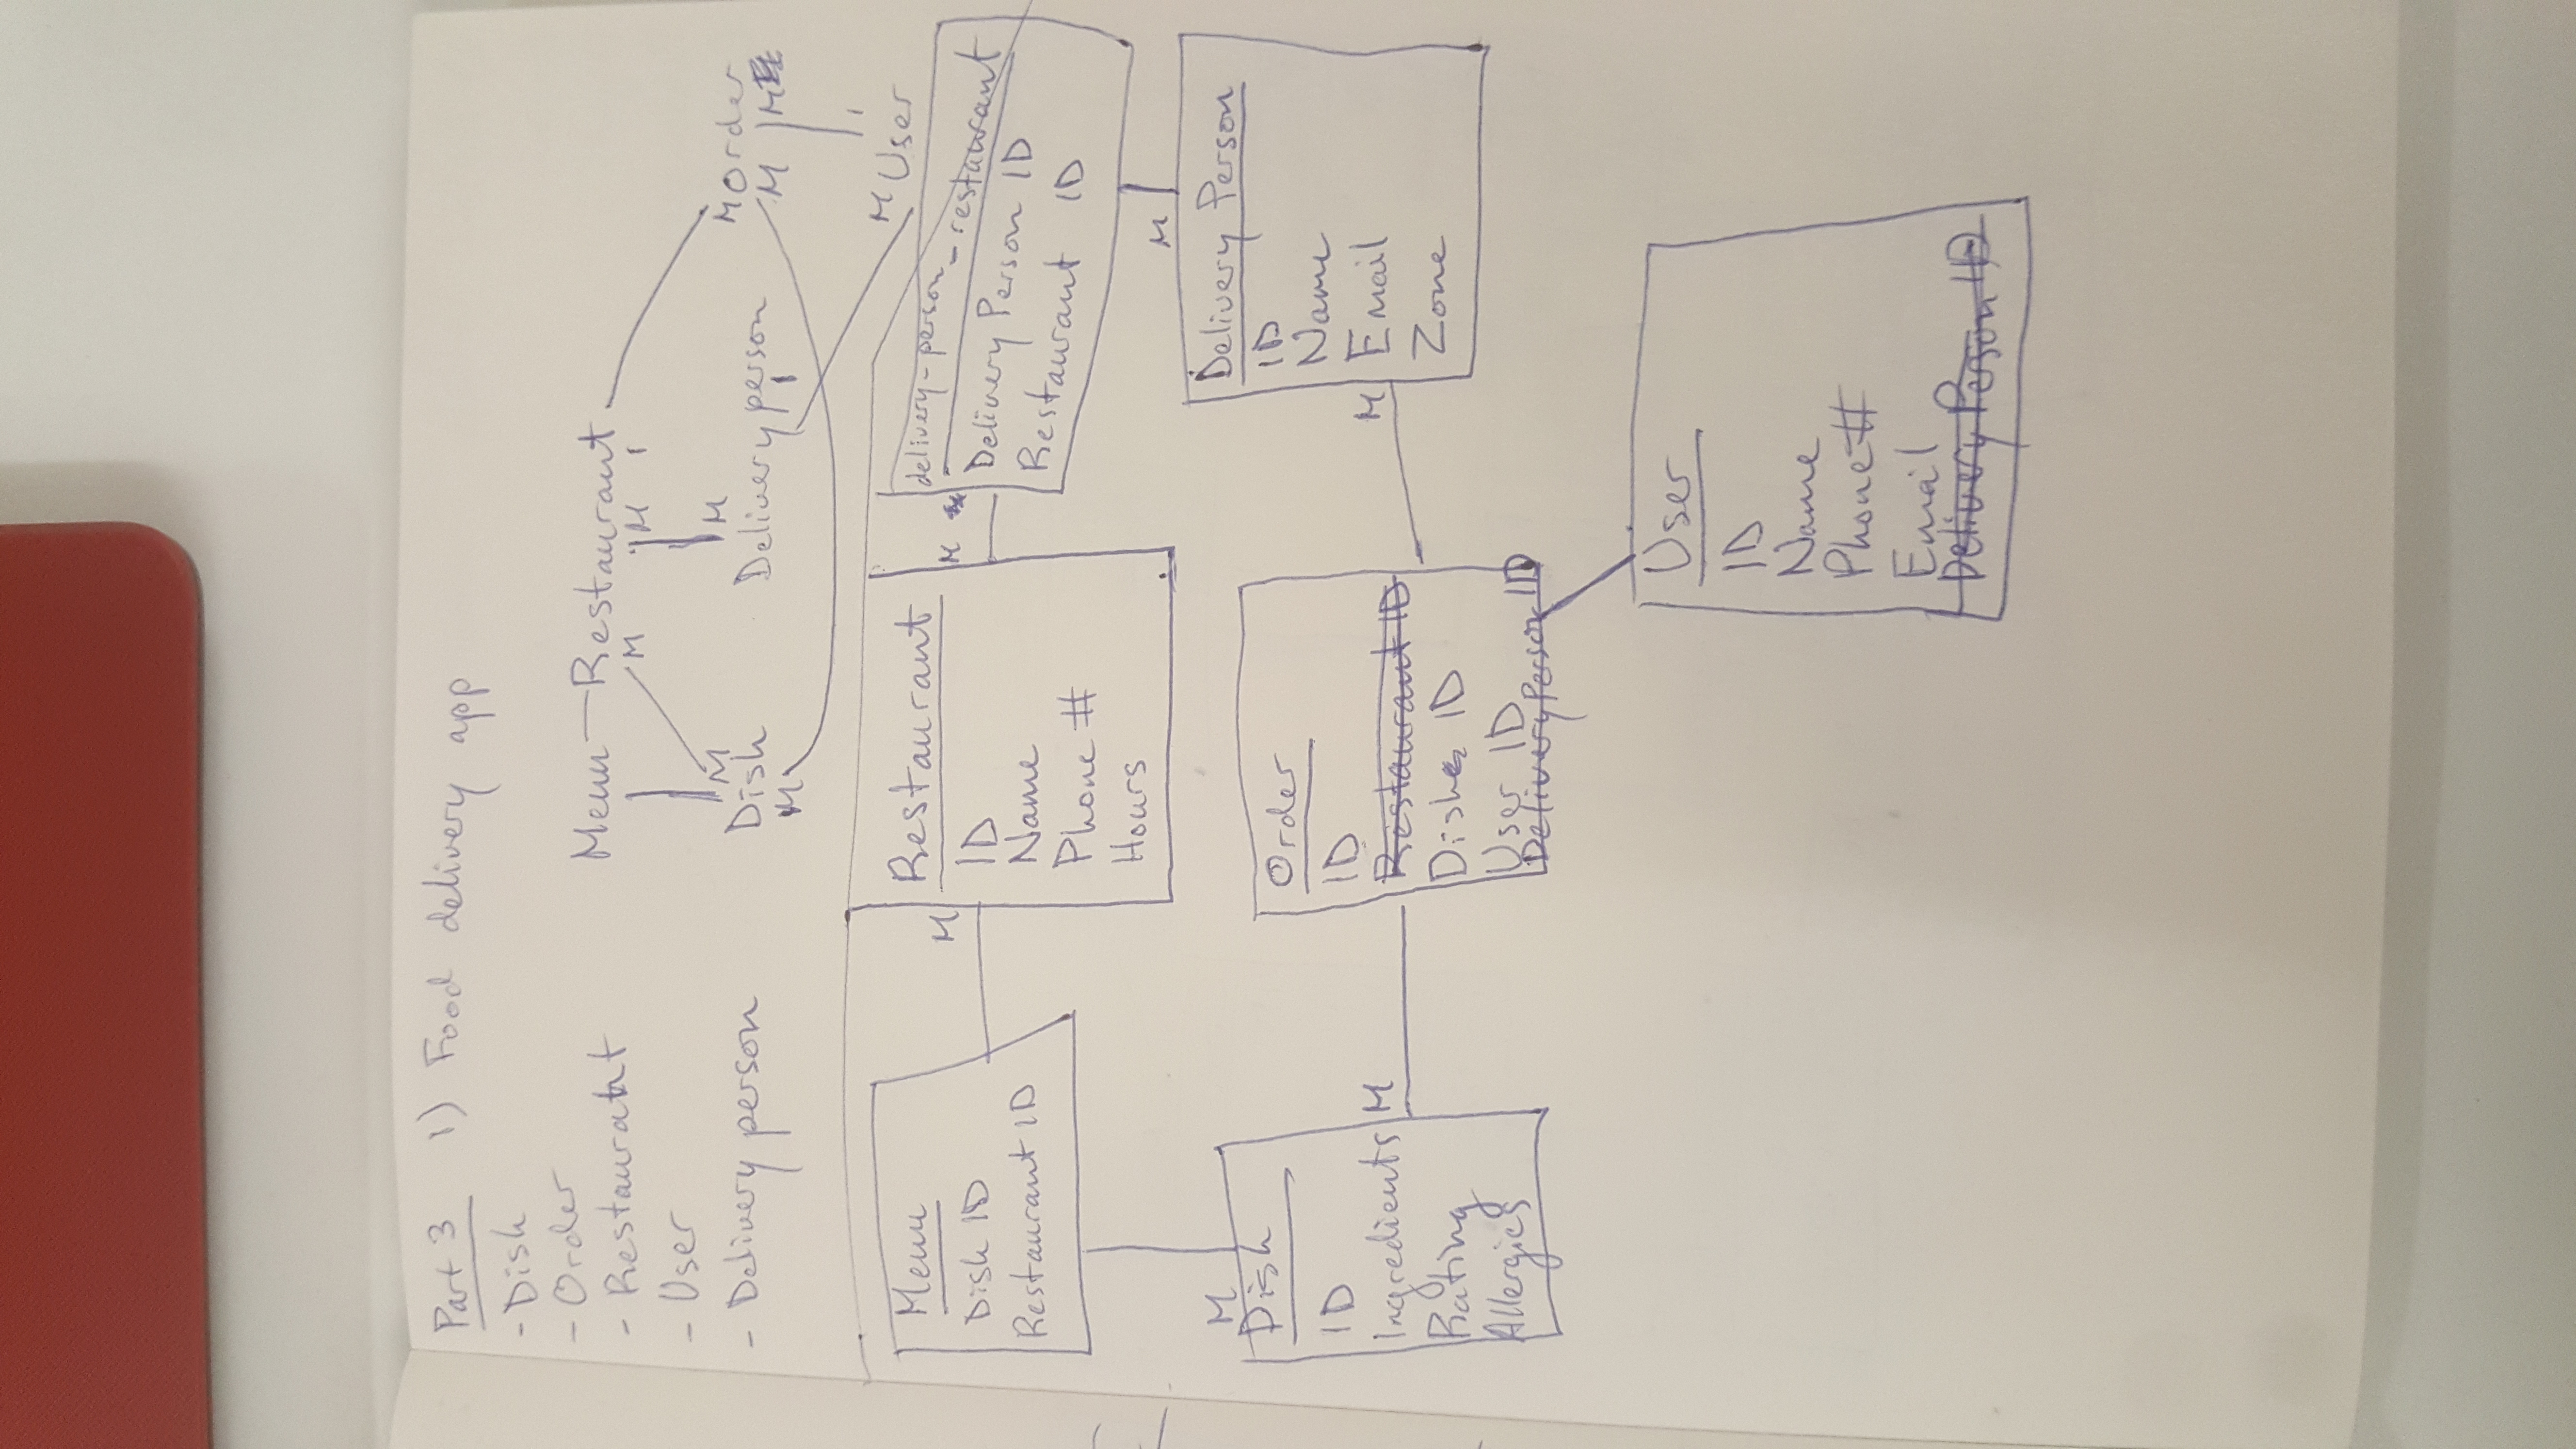 Part 3 1) Food delivery app
- Dish
- Order
- Restaurant
- User
- Delivery person
Menu Restaurant
M M 1
M M
Dish Delivery person M Order
M 1 M M
1
M User
Menu
Dish ID
Restaurant ID
M
Restaurant
ID
Name
Phone #
Hours
M
delivery-person-restaurant
Delivery Person ID
Restaurant ID
M
M
Dish
ID
Ingredients M
Rating
Allergies
Order
ID
Restaurant ID
Dishes ID
User ID
Delivery Person ID
M
Delivery Person
ID
Name
Email
Zone
User
ID
Name
Phone #
Email
Delivery Person ID